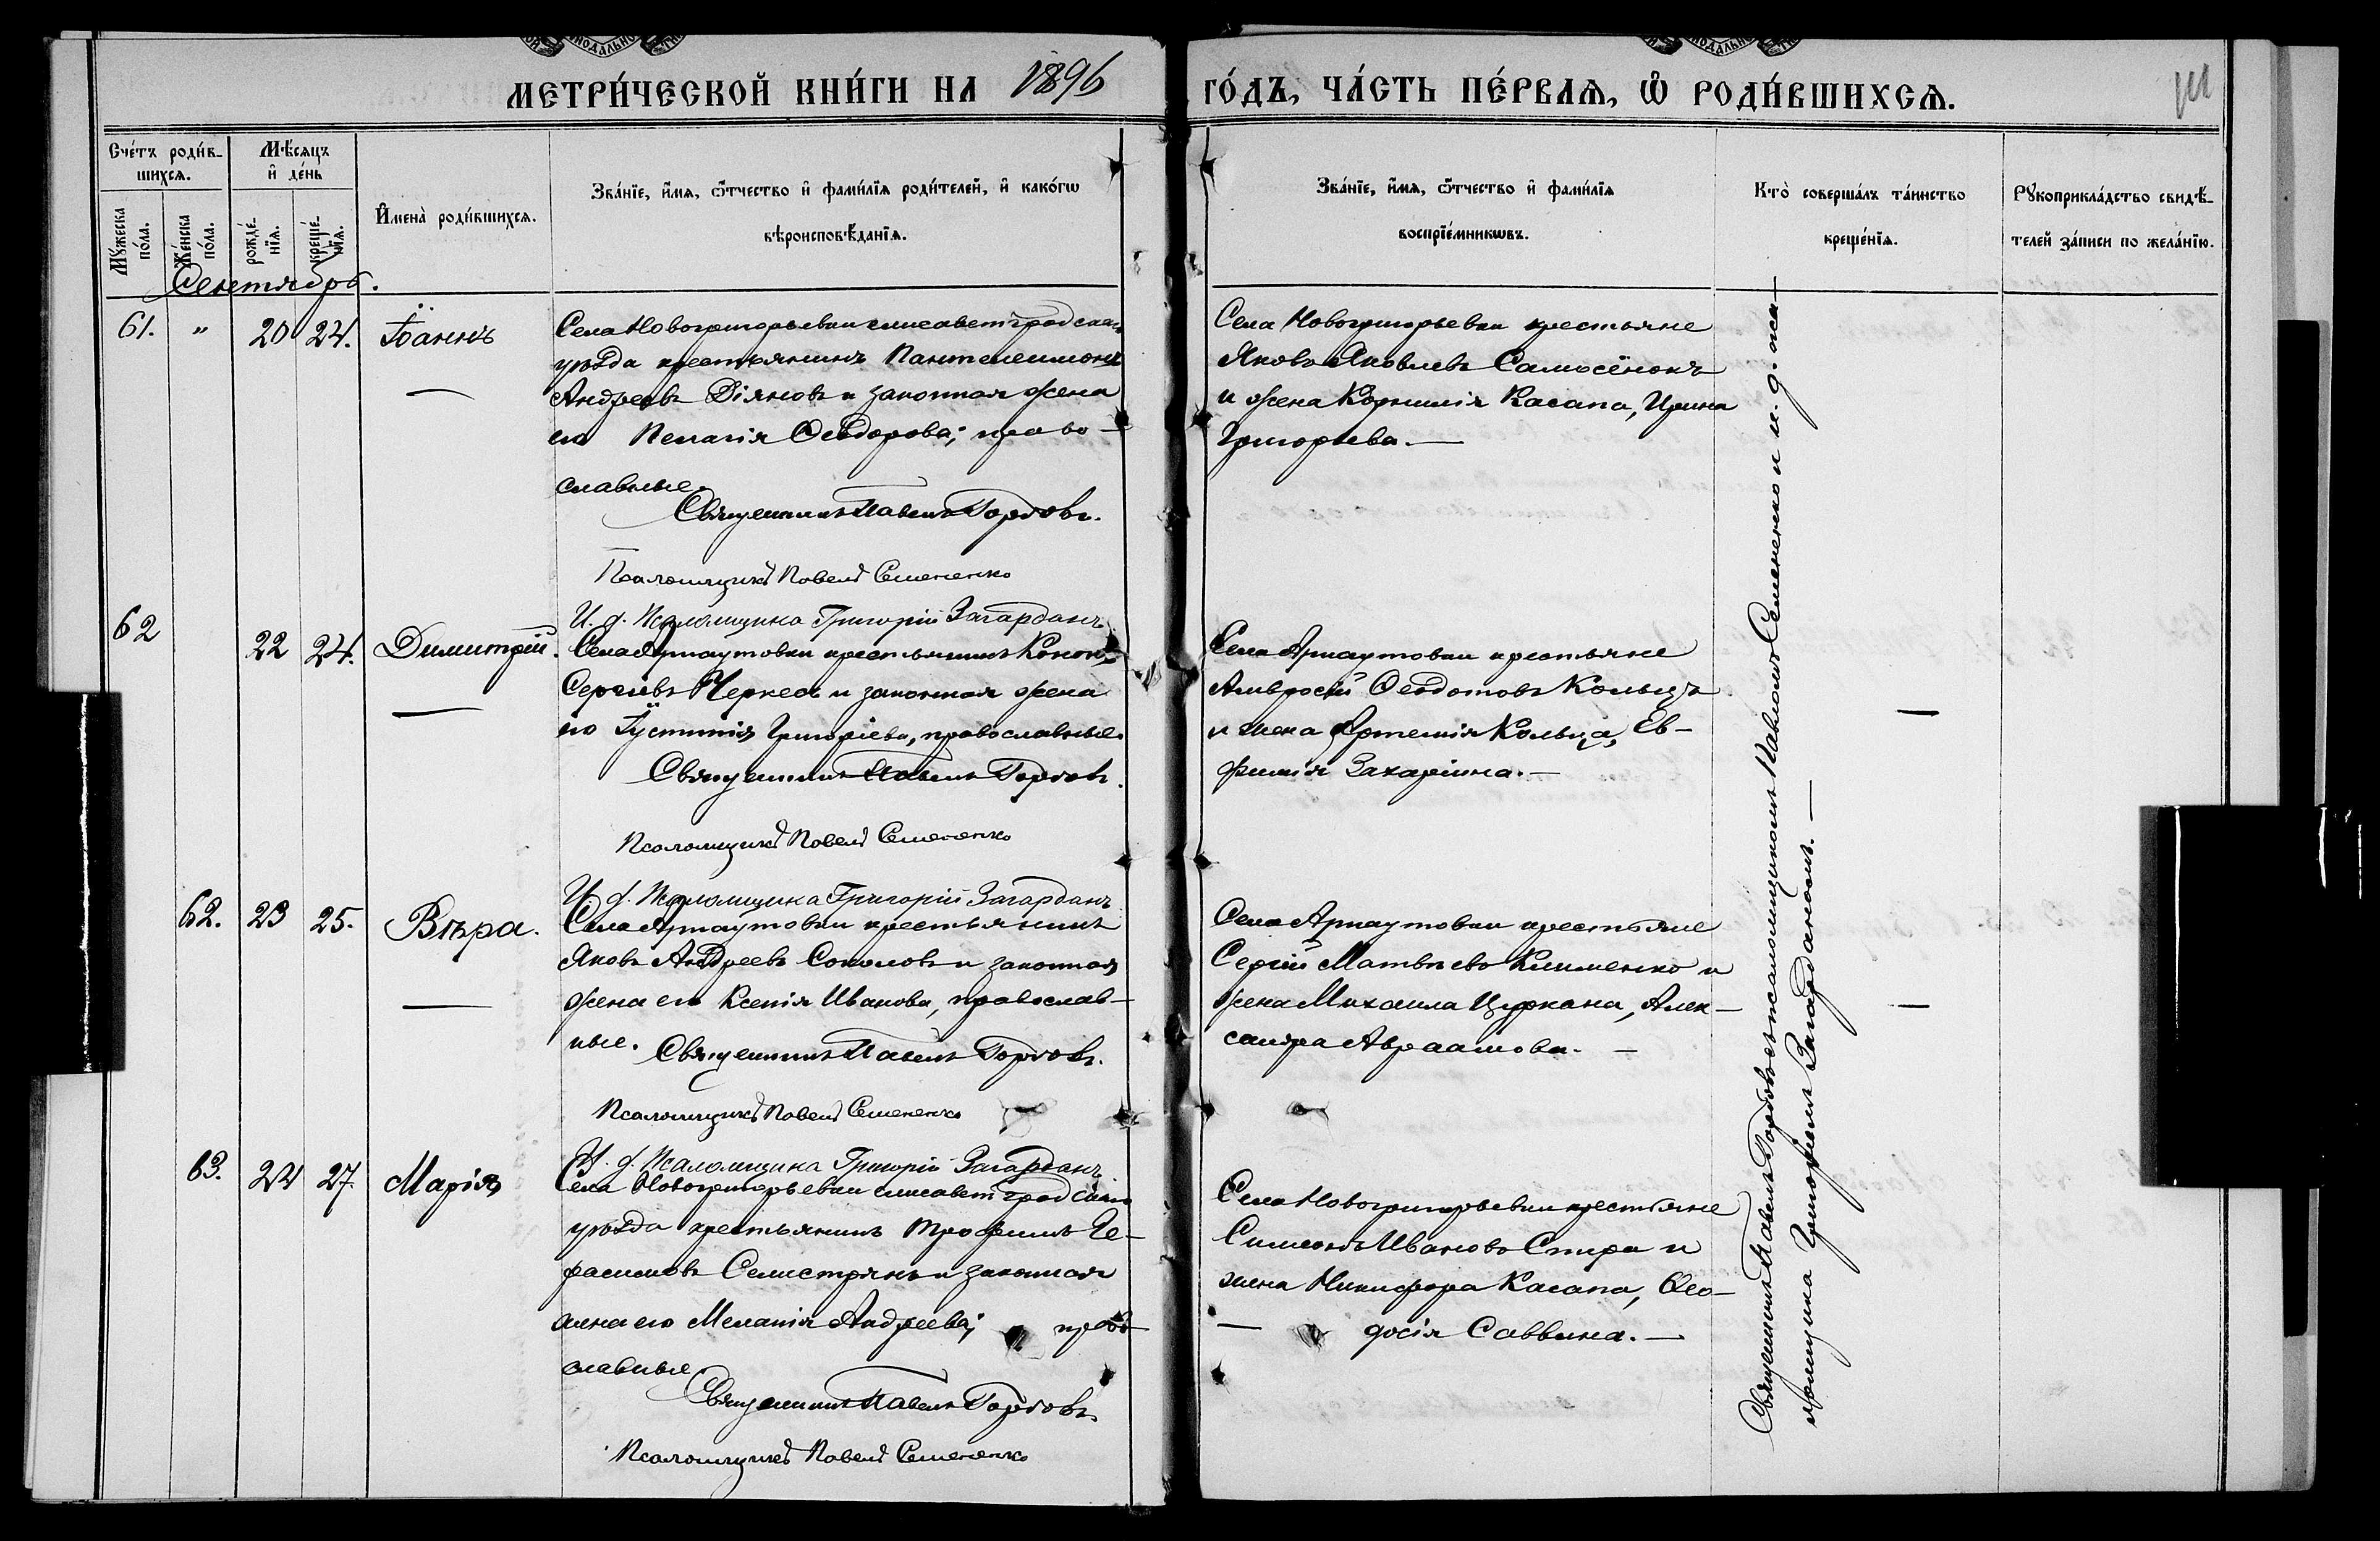 МЕТРИ́ЧЕСКОЙ КНИ́ГИ НА 1896
ГО́ДЪ, ЧА́СТЬ ПЕ́РВАЯ, Ѡ РОДИ́ВШИХСѦ.
Сче́тъ роди́в-
шихсѧ.
Мѣ́сѧцъ
и де́нь
Мꙋ́жеска
по́ла.
Же́нска
по́ла.
рожде́-
нїѧ.
креще́-
нїѧ.
Имена̀ роди́вшихсѧ.
Зва́нїе, и́мѧ, ѻ́тчество и фами́лїѧ роди́телей, и како́гѡ
вѣроисповѣ́данїѧ.
Зва́нїе, и́мѧ, ѻ́тчество и фами́лїѧ
воспрїе́мникѡвъ.
Кто̀ соверша́лъ та́инство
креще́нїѧ.
Рꙋкоприкла́дство свидѣ́-
телей за́писи по жела́нїю.
Сентябрь.
61. " 20 24. Іоаннъ
Села Новогригорьевки елисаветградскаго
уѣзда крестьянинъ Пантелеимонъ
Андреевъ Діяновъ и законная жена
его Пелагія Ѳеодорова; право-
славные.
Священникъ Павелъ Гордовъ.
Псаломщикъ Павелъ Семененко
И. д. Псаломщика Григорій Загарданъ
Села Новогригорьевки крестьяне
Яковъ Яковлевъ Самосёнокъ
и жена Корнилія Касапа, Ирина
Григорьева. —
62 22 24. Димитрій.
Села Арнаутовки крестьянинъ Конон
Сергіевъ Черкесъ и законная жена
его Іустинія Григоріева, православные.
Священникъ Павелъ Гордовъ.
Псаломщикъ Павелъ Семененко
И. д. Псаломщика Григорій Загарданъ
Села Арнаутовки крестьяне
Амвросій Ѳеодотовъ Кольцъ
и жена Артемія Кольца, Ев-
фимія Захаріина. —
62. 23 25. Вѣра.
Села Арнаутовки крестьянинъ
Яковъ Андреевъ Соколовъ и законная
жена его Ксенія Иванова, православ-
ные. Священникъ Павелъ Гордовъ.
Псаломщикъ Павелъ Семененко
И. д. Псаломщика Григорій Загарданъ
Села Арнаутовки крестьяне
Сергій Матвѣевъ Клименко и
жена Михаила Цуркана, Алек-
сандра Авраамова. —
63. 24 27. Марія
Села Новогригорьевки елисаветградскаго
уѣзда крестьянинъ Трофимъ Ге-
расимовъ Селистрянъ и законная
жена его Меланія Андреева; право-
славные
Священникъ Павелъ Гордовъ.
Псаломщикъ Павелъ Семененко
Села Новогригорьевки крестьяне
Симеонъ Ивановъ Спира и
жена Никифора Касапа, Ѳео-
досія Саввина. —
Священникъ Павелъ Гордовъ съ псаломщикомъ Павломъ Семененко и и. д. пса-
ломщика Григоріемъ Загарданомъ. —